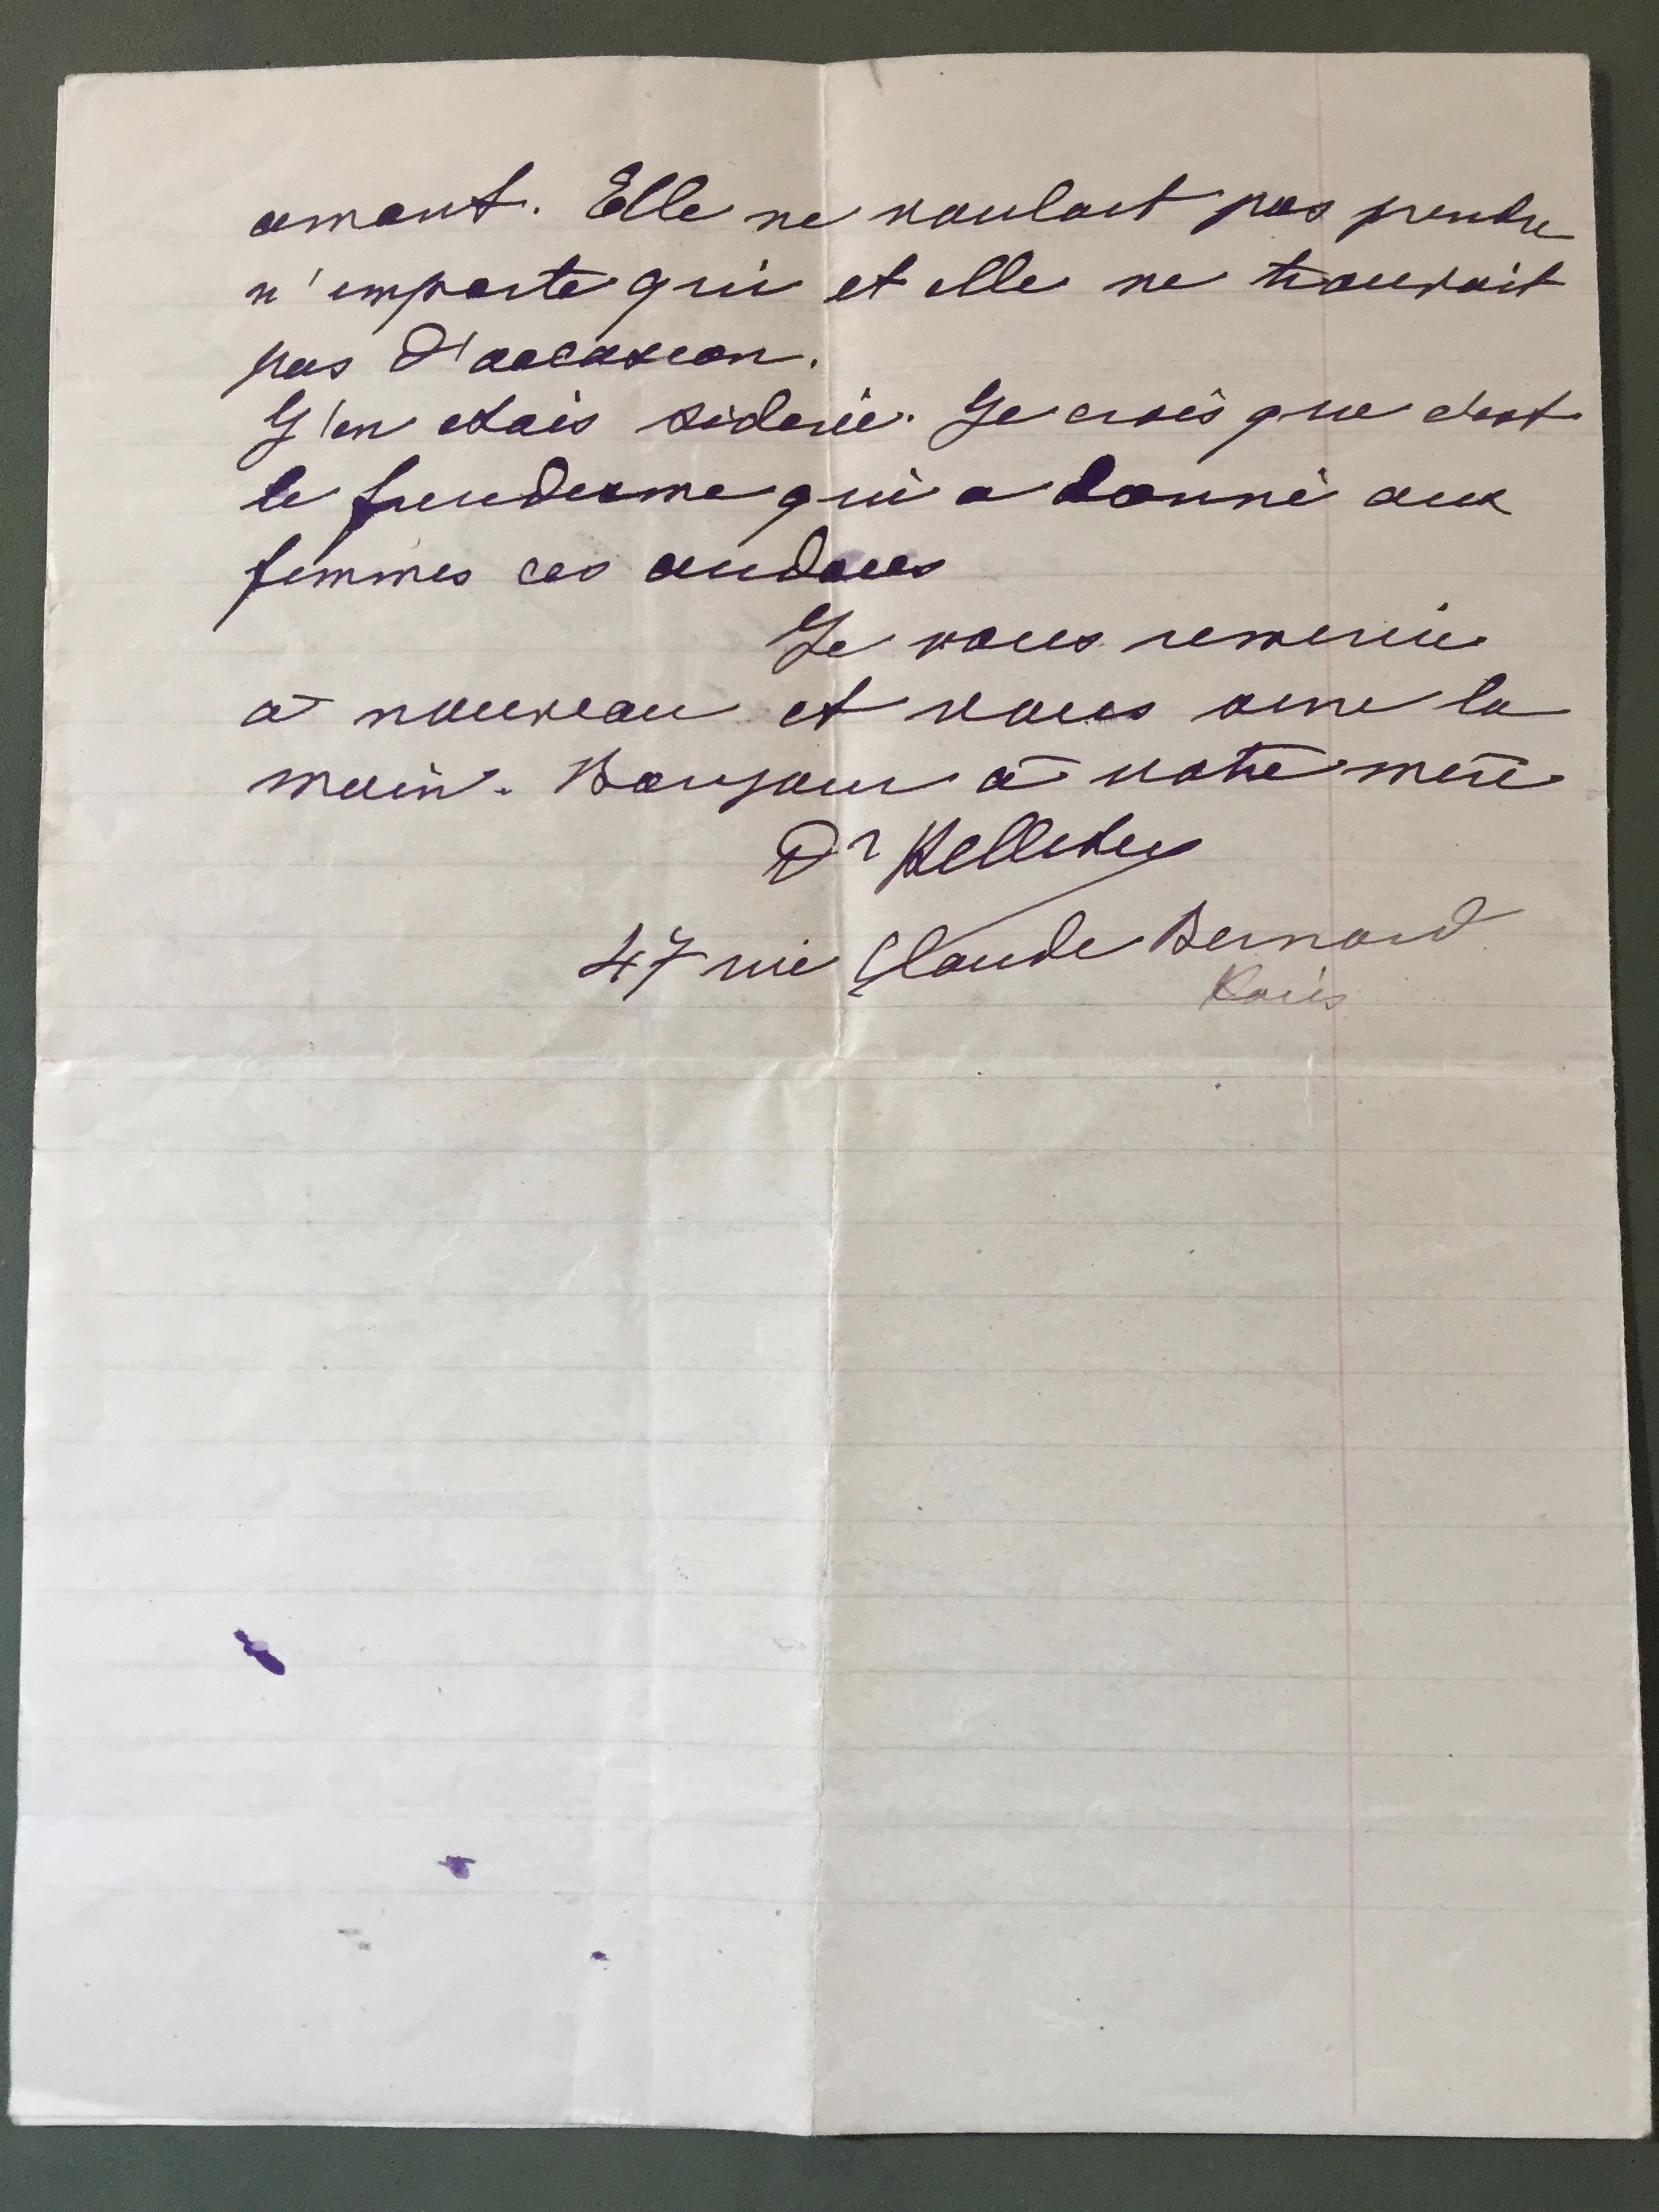 amant. Elle ne voulait pas prendre
n'importe qui et elle ne trouvait
pas d'occasion.
J'en étais sidérée. Je crois que c'est
le freudisme qui a donné aux
femmes ces audaces
Je vous remercie
à nouveau et vous serre la
main. Bonjour à votre mère
Dr Pelletier
47 rue Claude Bernard
Paris